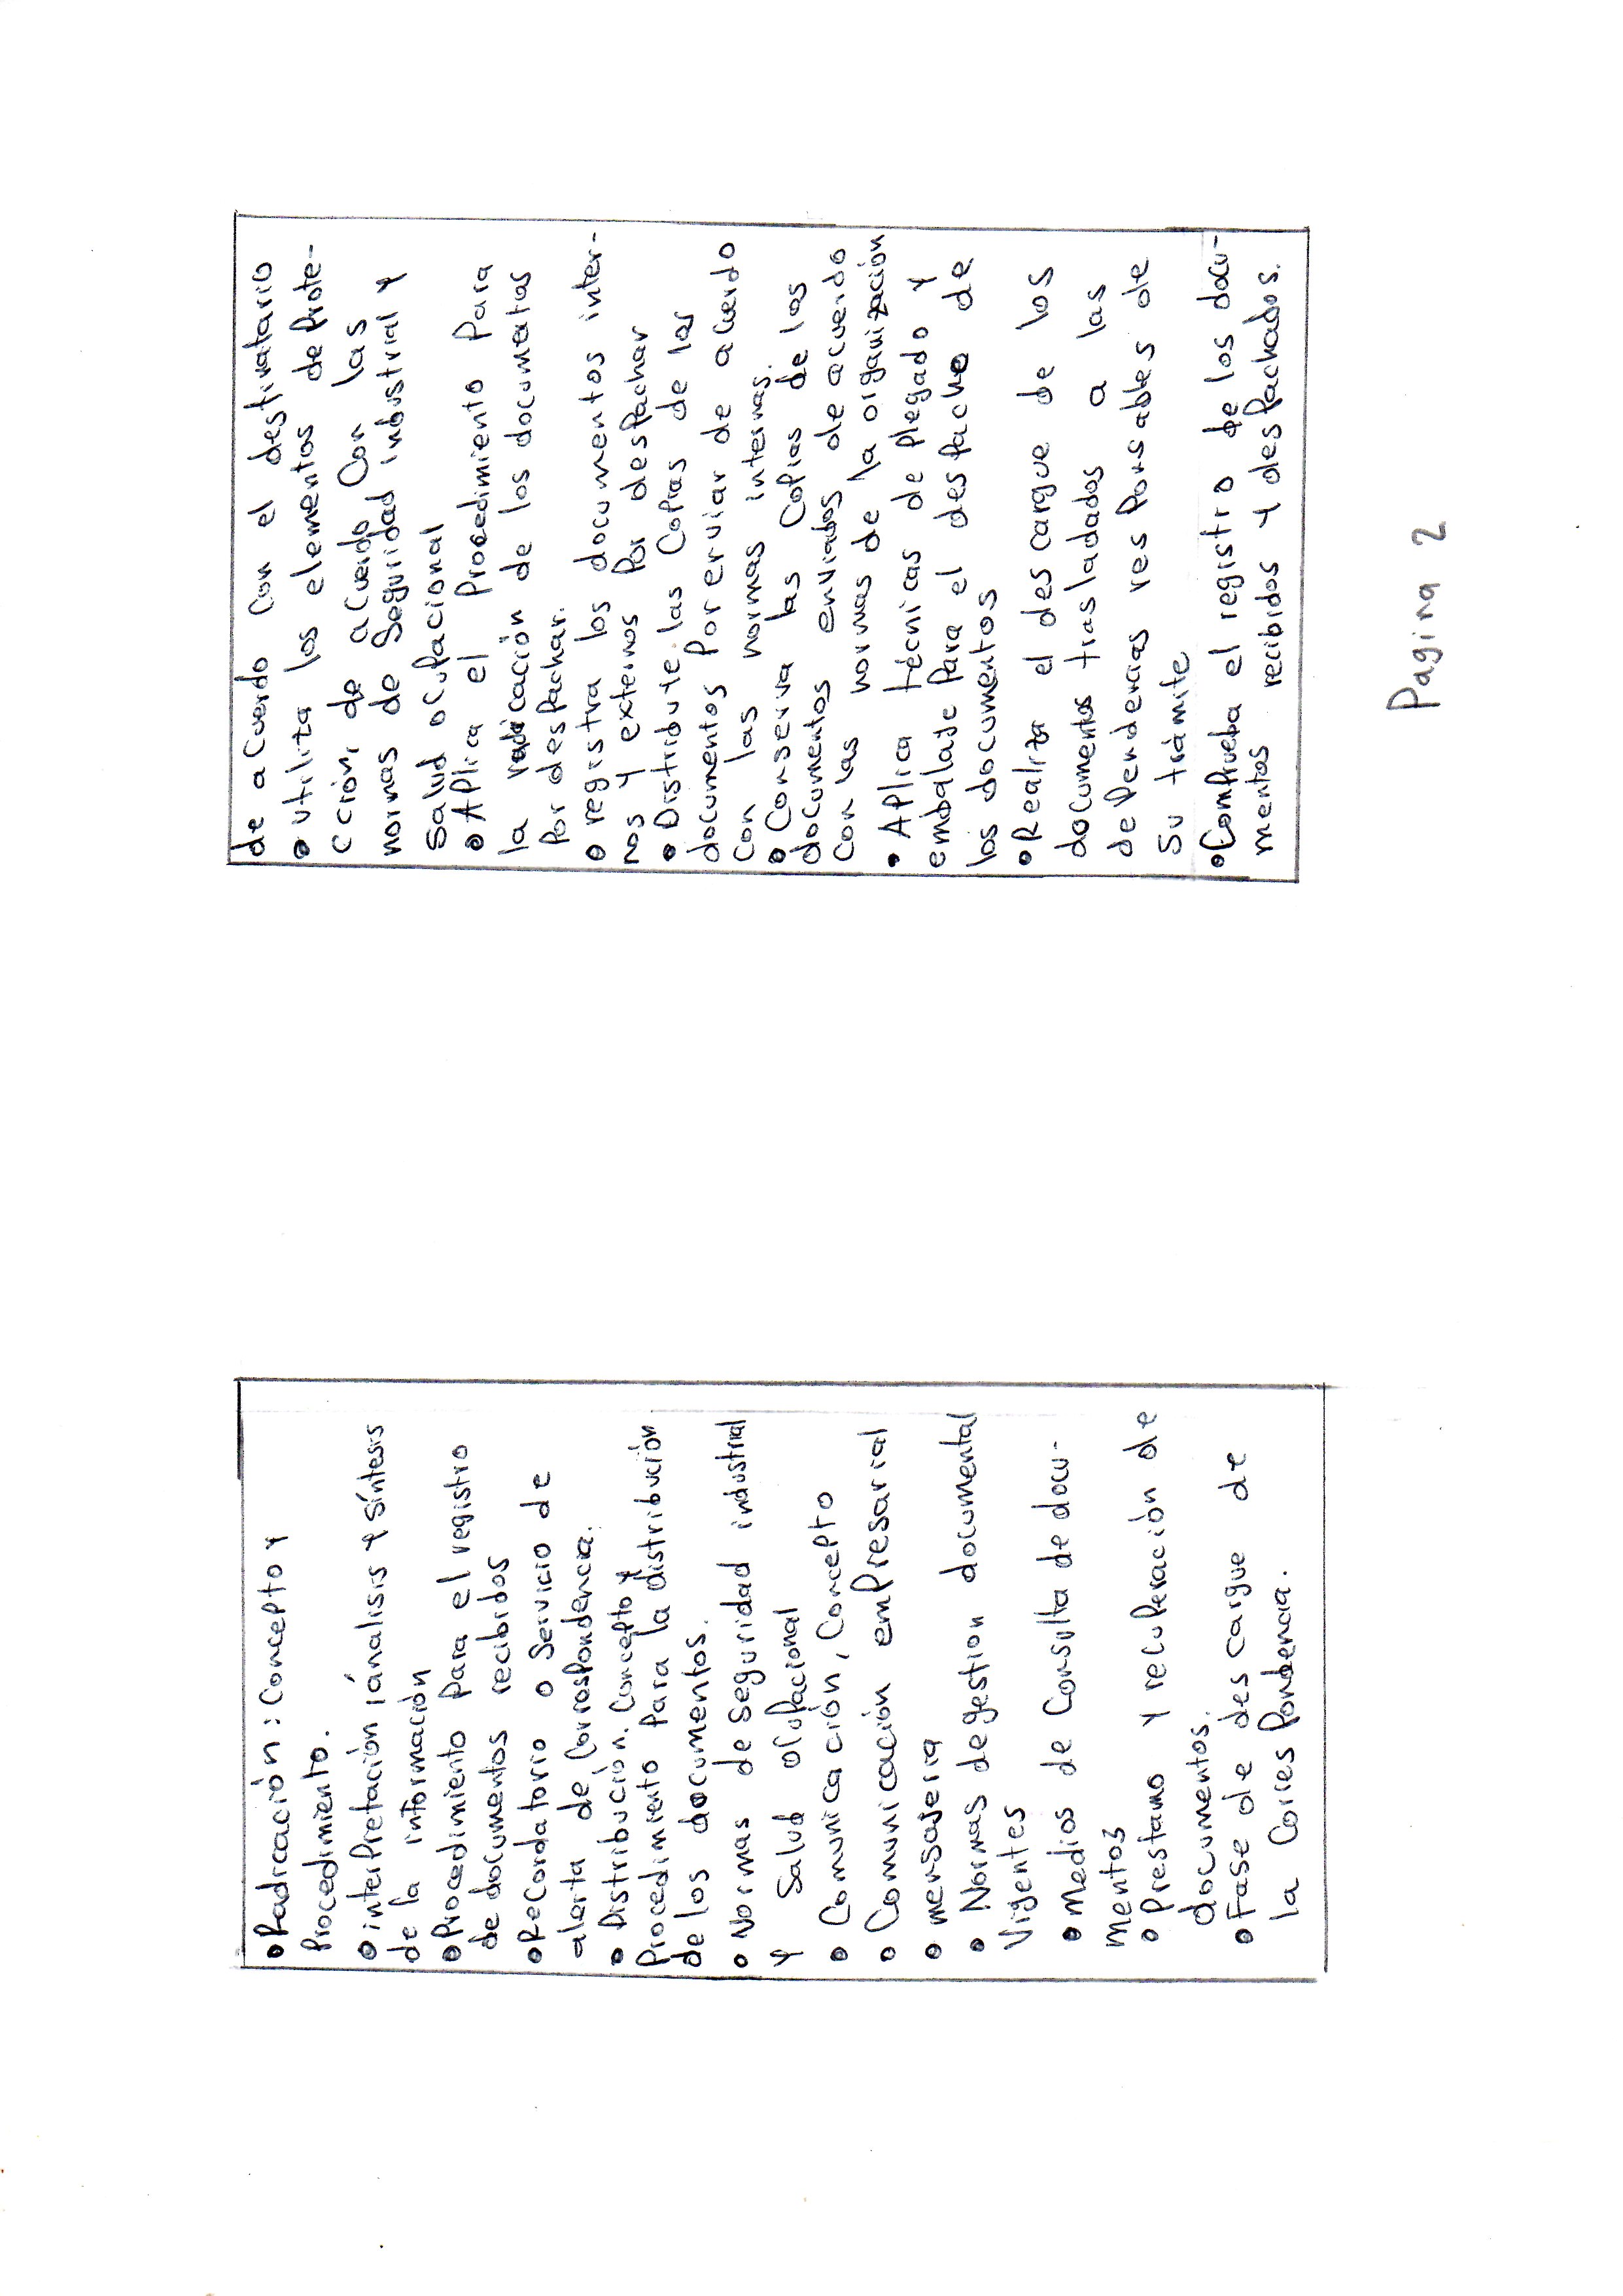 • Radicación: Concepto y
Procedimiento.
• interpretación, ánalisis y síntesis
de la información
• Procedimiento para el registro
de documentos recibidos
• Recordatorio o Servicio de
alerta de Correspondencia.
• Distribución. Concepto y
Procedimiento para la distribución
de los documentos.
• Normas de seguridad industrial
y Salud ocupacional
• Comunicación, Concepto
• Comunicación empresarial
• mensajeria
• Normas de gestion documental
Vigentes
• Medios de Consulta de docu-
mentos
• Prestamo y recuperación de
documentos.
• Fase de des cargue de
la Correspondencia.
de acuerdo con el destinatario
• utiliza los elementos de prote-
cción, de acuerdo Con las
normas de Seguridad industrial y
Salud ocupacional
• Aplica el Procedimiento Para
la radicación de los documentos
Por despachar.
• registra los documentos inter-
nos y externos Por despachar
• Distribuye las Copias de los
documentos Por enviar de acuerdo
con las normas internas.
• Conserva las Copias de los
documentos enviados de acuerdo
con las normas de la organización
• Aplica técnicas de plegado y
embalaje Para el despacho de
los documentos
• Realiza el des cargue de los
documentos trasladados a las
dependencias responsables de
su trámite
• Comprueba el registro de los docu-
mentos recibidos y despachados.
Pagina 2